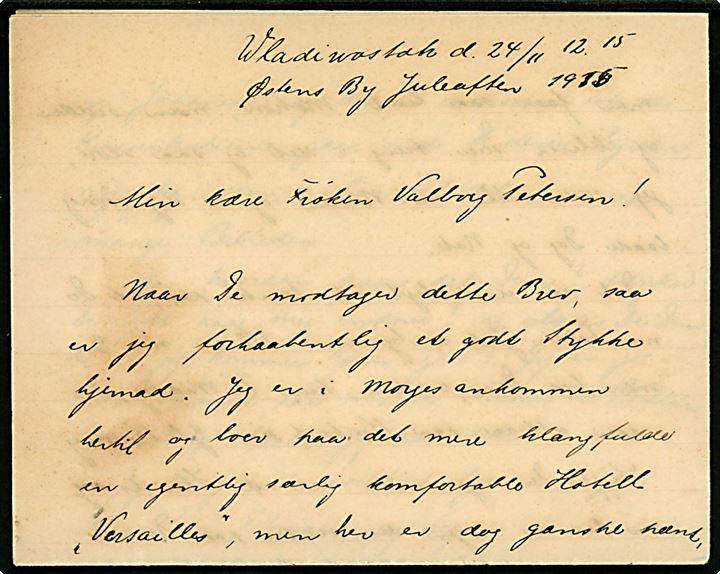 Wladiwostok d. 24/11 12. 15
Østens By Juleaften 1915
Min kære Frøken Valborg Petersen!
Naar De modtager dette Brev, saa
er jeg forhaabentlig et godt Stykke
hjemad. Jeg er i Morges ankommen
hertil og boer paa det mere klangfulde
en egentlig særlig komfortable Hotell
"Versailles", men her er dog ganske pænt,